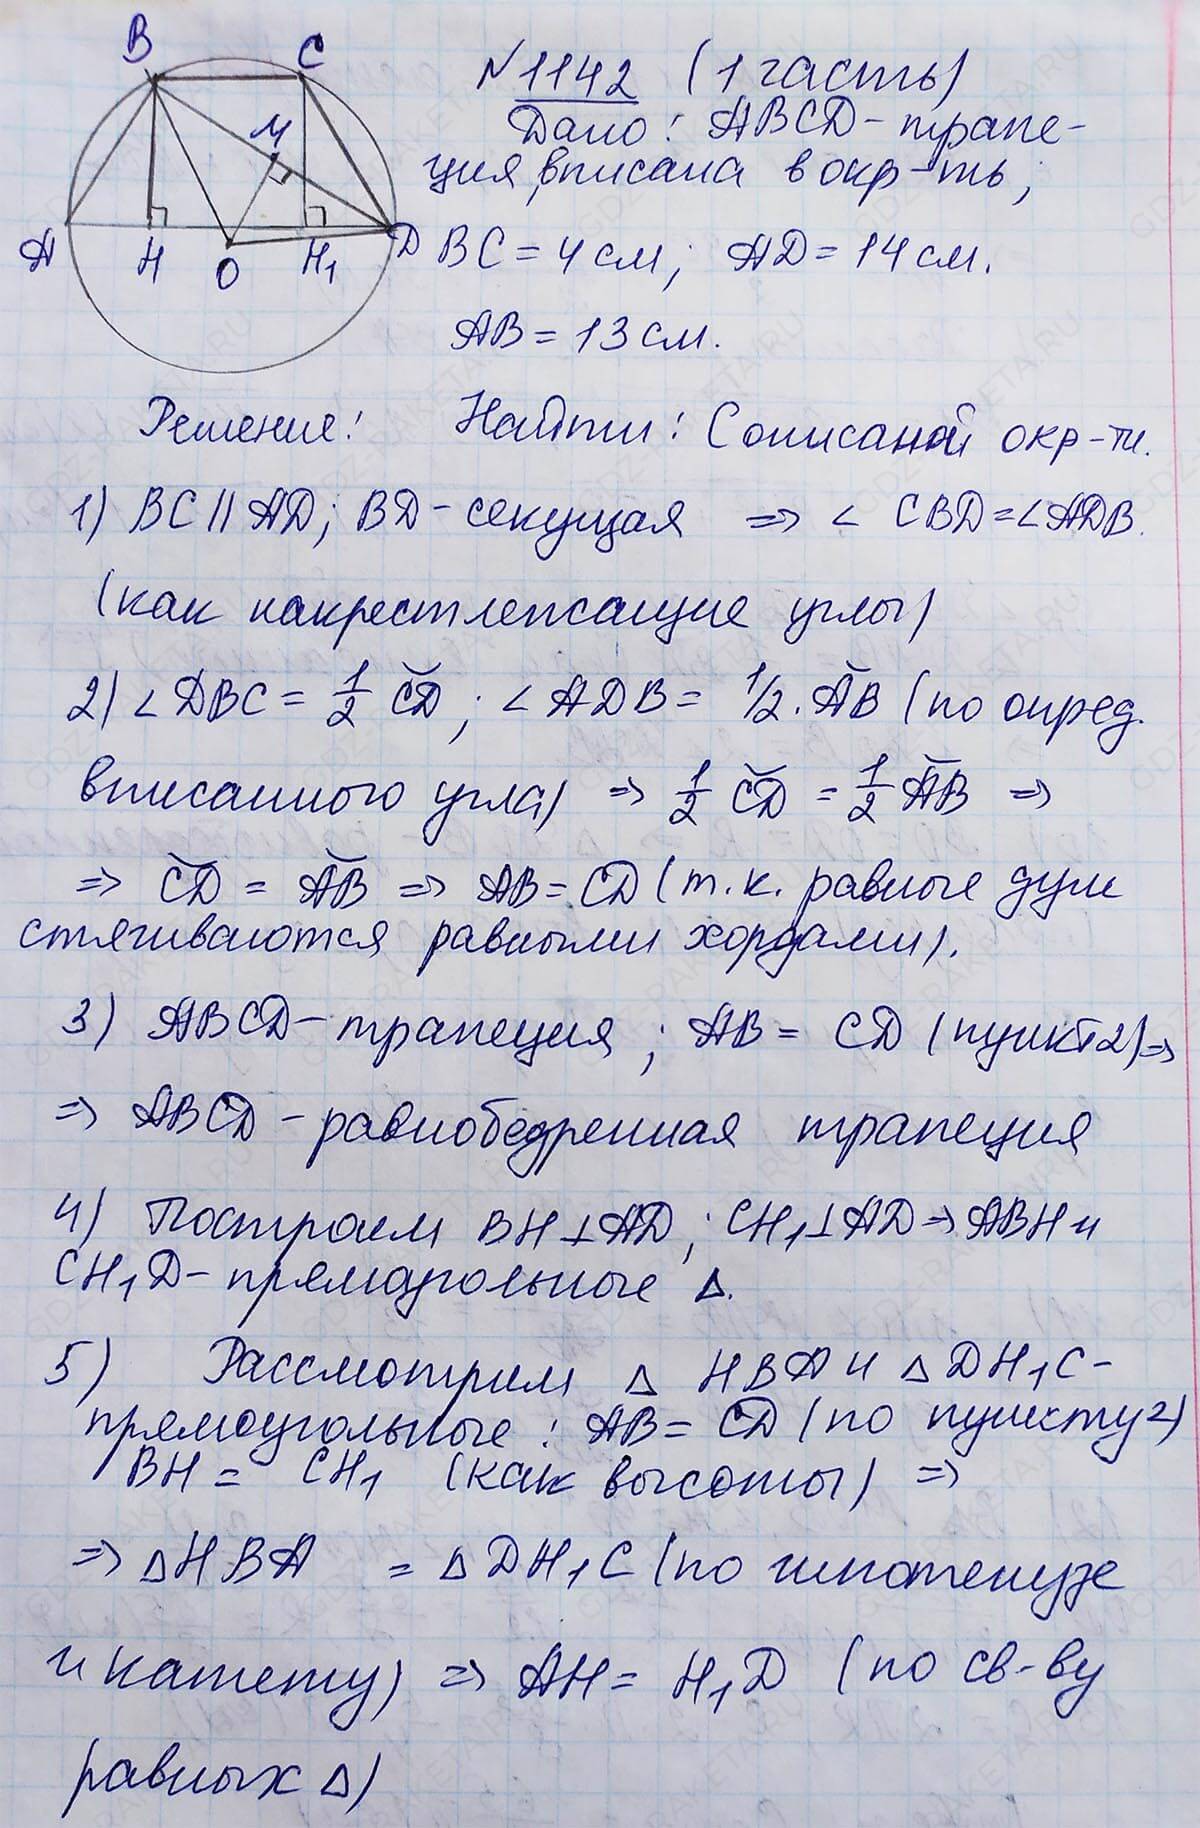 B C
М
A H O H₁ D
№1142 (1 часть)
Дано: ABCD - трапе-
ция, вписана в окр-ть;
BC = 4 см; AD = 14 см.
AB = 13 см.
Решение: Найти: C описаной окр-ти.
1) BC || AD; BD - секущая => ∠ CBD = ∠ADB.
(как накрестлежащие углы)
2) ∠DBC = 1/2 ◡CD; ∠ADB = 1/2 · ◡AB (по опред.
вписанного угла) => 1/2 ◡CD = 1/2 ◡AB =>
=> ◡CD = ◡AB => AB = CD (т.к. равные дуги
стягиваются равными хордами).
3) ABCD - трапеция; AB = CD (пункт 2) =>
=> ABCD - равнобедренная трапеция
4) Построим BH ⊥ AD; CH₁ ⊥ AD => ABH и
CH₁D - прямоугольные Δ.
5) Рассмотрим Δ HBA и Δ DH₁C -
прямоугольные: AB = CD (по пункту 2)
BH = CH₁ (как высоты) =>
=> ΔHBA = ΔDH₁C (по гипотенузе
и катету) => AH = H₁D (по св-ву
равных Δ)